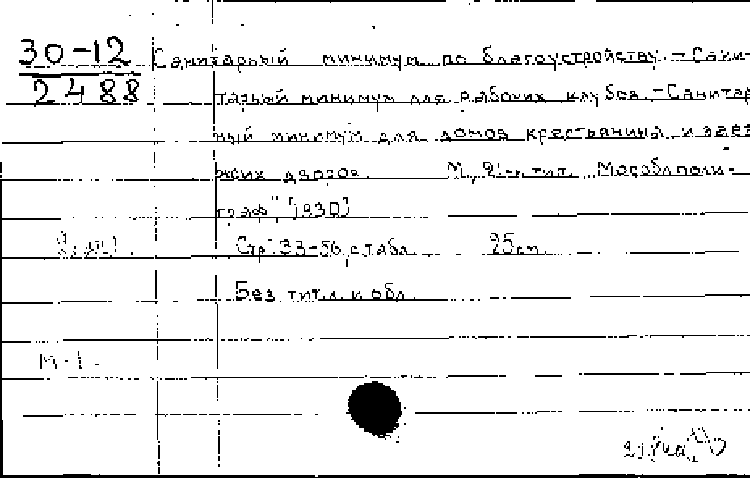 30-12
2488
Санитарный минимум по благоустройству.-Сани-
тарный минимум для рабочих клубов.-Санитар
ный минимум для домов крестьянина и заез
жих дворов. М, 21-я тип. „Мособлполи-
граф", [1930]
Стр. 33-56, с табл. 25см.
Без тит.л. и обл.
М-1.